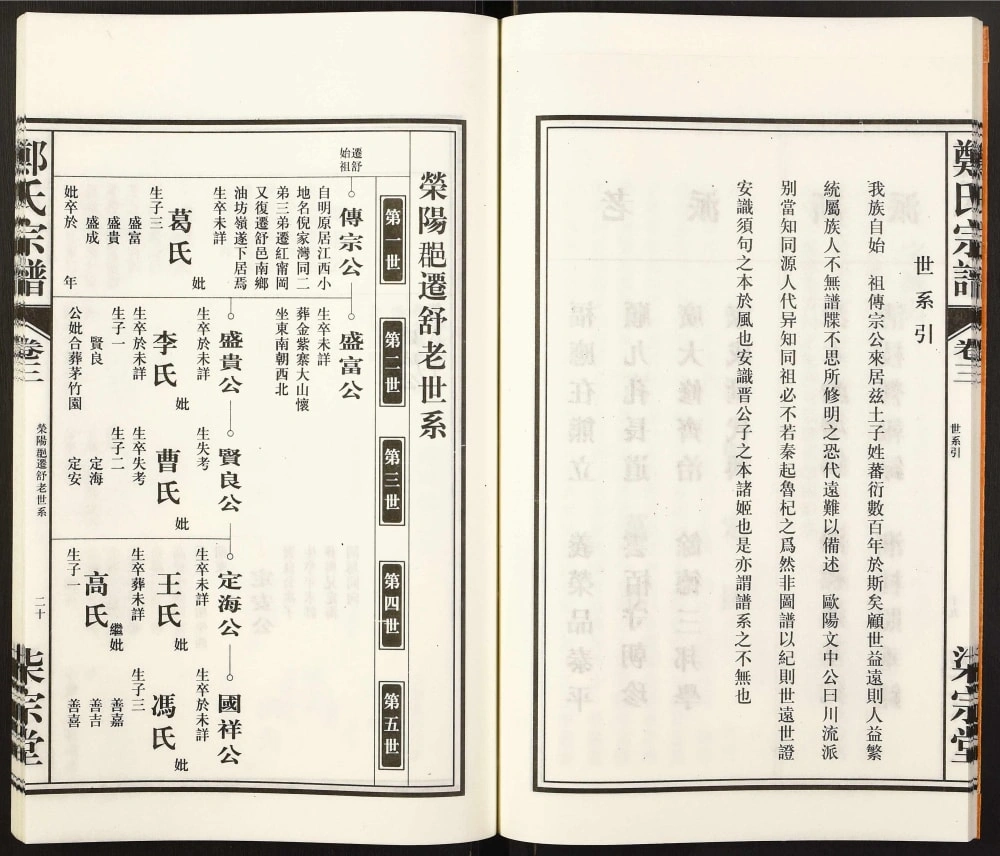 鄭氏宗譜
卷三
世系引
世系引
我族自始　祖傳宗公來居兹土子姓蕃衍數百年於斯矣顧世益遠則人益繁
統屬族人不無譜牒不思所修明之恐代遠難以備述　歐陽文中公曰川流派
別當知同源人代异知同祖必不若秦起魯杞之爲然非圖譜以紀則世遠世證
安識須句之本於風也安識晋公子之本諸姬也是亦謂譜系之不無也
滎陽郡遷舒老世系
第一世
第二世
第三世
第四世
第五世
遷舒
始祖
傳宗公
自明原居江西小
地名倪家灣同二
弟三弟遷紅甯岡
又復遷舒邑南鄉
油坊嶺遂下居焉
生卒未詳
妣
葛氏
生子三
盛富
盛貴
盛成
妣卒於　年
盛富公
生卒未詳
葬金紫寨大山懷
坐東南朝西北
盛貴公
生卒於未詳
妣
李氏
生卒於未詳
生子一
賢良
公妣合葬茅竹園
賢良公
生失考
妣
曹氏
生卒失考
生子二
定海
定安
定海公
生卒未詳
妣
王氏
生卒葬未詳
繼妣
高氏
生子一
國祥公
生卒於未詳
妣
馮氏
生子三
善嘉
善吉
善喜
鄭氏宗譜
卷三
滎陽郡遷舒老世系
二十
宗堂